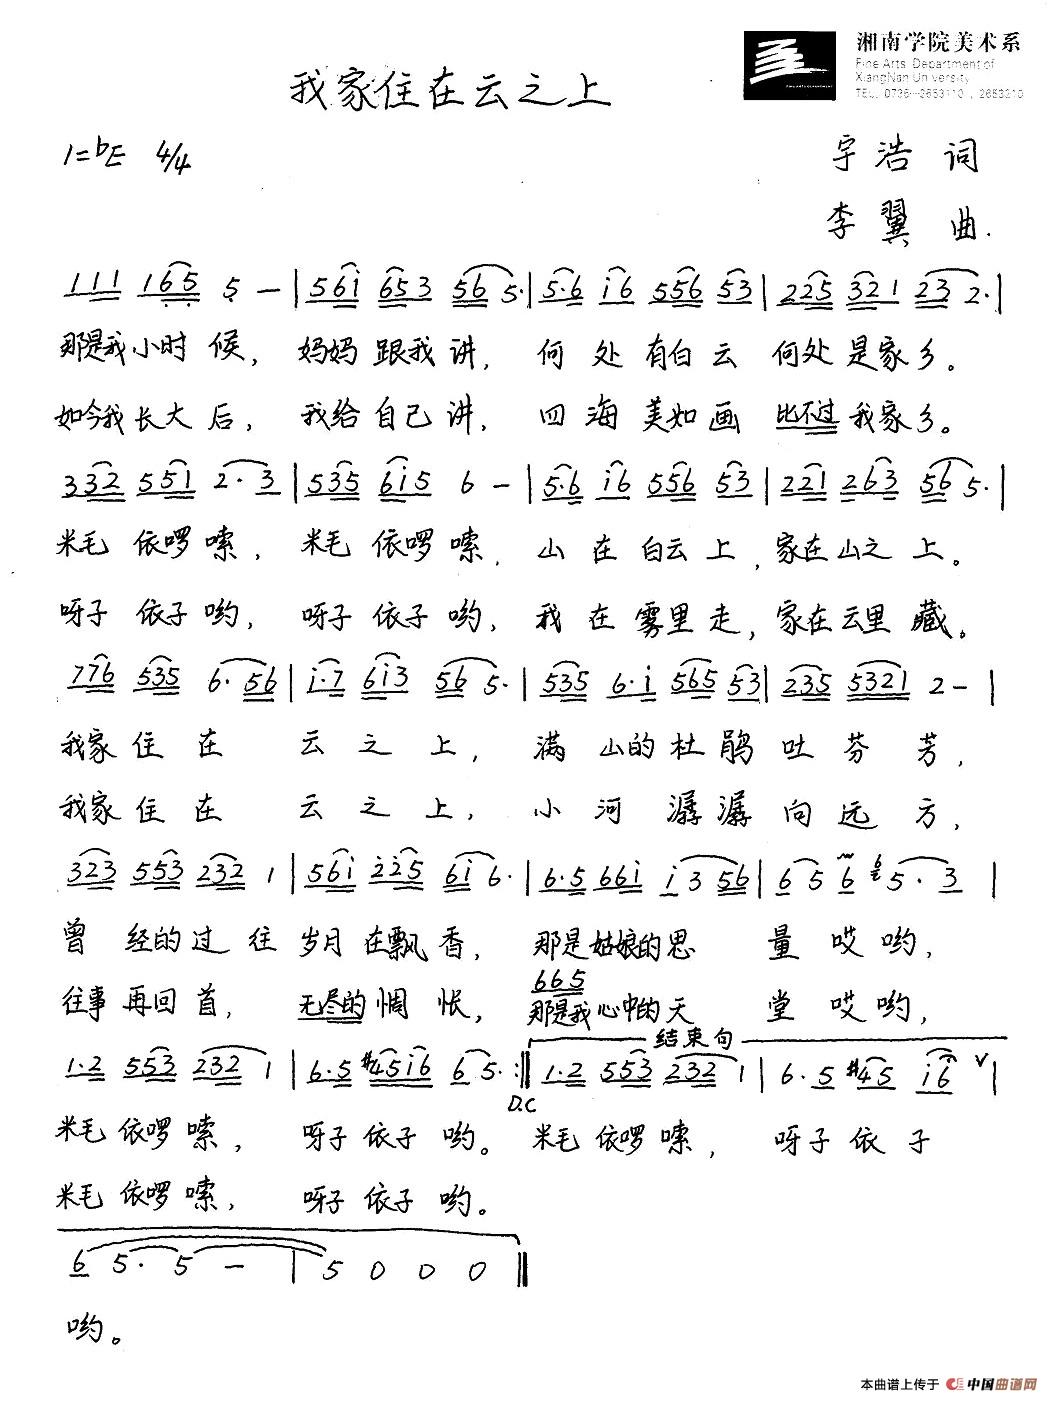 湘南学院美术系
Fine Arts Department of
XiangNan University
TEL. 0735-2653110 , 2653210
我家住在云之上
1=bE 4/4
宇浩 词
李翼 曲.
111 165 5 — | 56i 653 56 5· | 5·6 i6 556 53 | 225 321 23 2· |
那是我小时 候， 妈妈 跟我 讲， 何 处 有白 云 何处 是家乡。
如今我长大 后， 我给 自己 讲， 四 海 美如 画 比不过 我家乡。
332 551 2·3 | 535 6i5 6 — | 5·6 i6 556 53 | 221 263 56 5· |
米毛 依啰 嗦， 米毛 依啰 嗦， 山 在 白云 上，家在山之 上。
呀子 依子 哟， 呀子 依子 哟， 我 在 雾里 走，家在云里 藏。
776 535 6·56 | i·7 6i3 56 5· | 535 6·i 565 53 | 235 5321 2 — |
我家 住 在 云 之 上， 满 山的 杜 鹃 吐 芬 芳，
我家 住 在 云 之 上， 小 河 潺 潺 向 远 方，
323 553 232 1 | 56i 225 6i 6· | 6·5 66i i3 56 | 6 5 6 5·3 |
曾 经的 过 往 岁月 在飘 香， 那是 姑娘的 思 量 哎 哟，
665
往事 再回 首， 无尽的 惆 怅， 那是我 心中的 天 堂 哎 哟，
结束句
1·2 553 232 1 | 6·5 #45i6 6 5· :‖ 1·2 553 232 1 | 6·5 #45 i6 V |
D.C
米毛 依啰 嗦， 呀子 依子 哟。 米毛 依啰 嗦， 呀子 依 子
米毛 依啰 嗦， 呀子 依子 哟。
6 5· 5 — | 5 0 0 0 ‖
哟。
本曲谱上传于 中国曲谱网